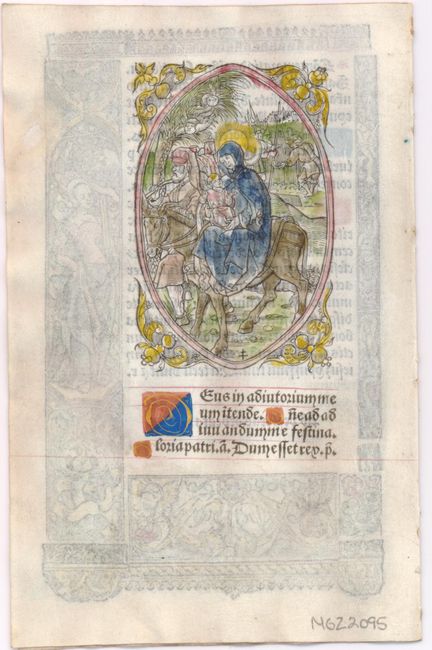 Eus in adiutorium me
um itende. ñe ad ad
iuuandum me festina.
loria patri. ã. Dum esset rex. p̄.
MGZ2095